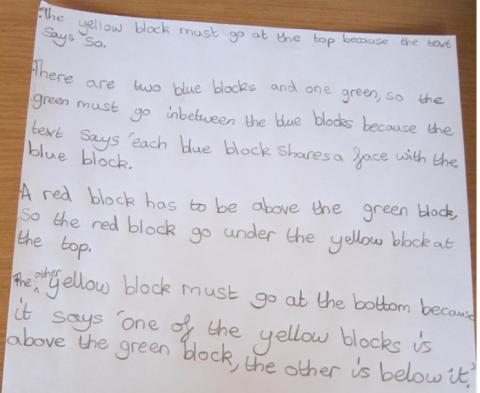 The yellow block must go at the top because the text
says so.
There are two blue blocks and one green, so the
green must go inbetween the blue blocks because the
text says 'each blue block shares a face with the
blue block.
A red block has to be above the green block,
so the red block go under the yellow block at
the top.
The other yellow block must go at the bottom because
it says 'one of the yellow blocks is
above the green block, the other is below it.'